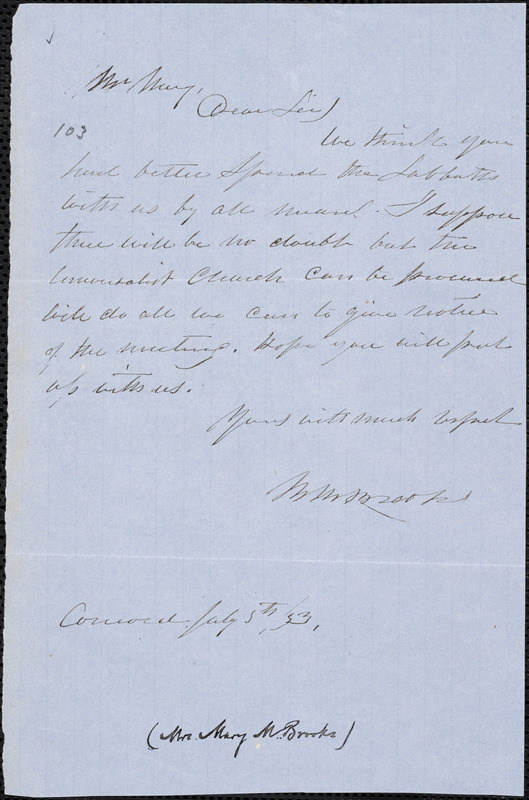 Mr May,
Dear Sir,
103
We think you
had better spend the Sabbath
with us by all means. I suppose
there will be no doubt but the
Universalist Church can be procured
Will do all we can to give notice
of the meeting. Hope you will put
up with us.
Yours with much respect
M M Brooks
Concord July 5th, /53,
(Mrs. Mary M. Brooks)